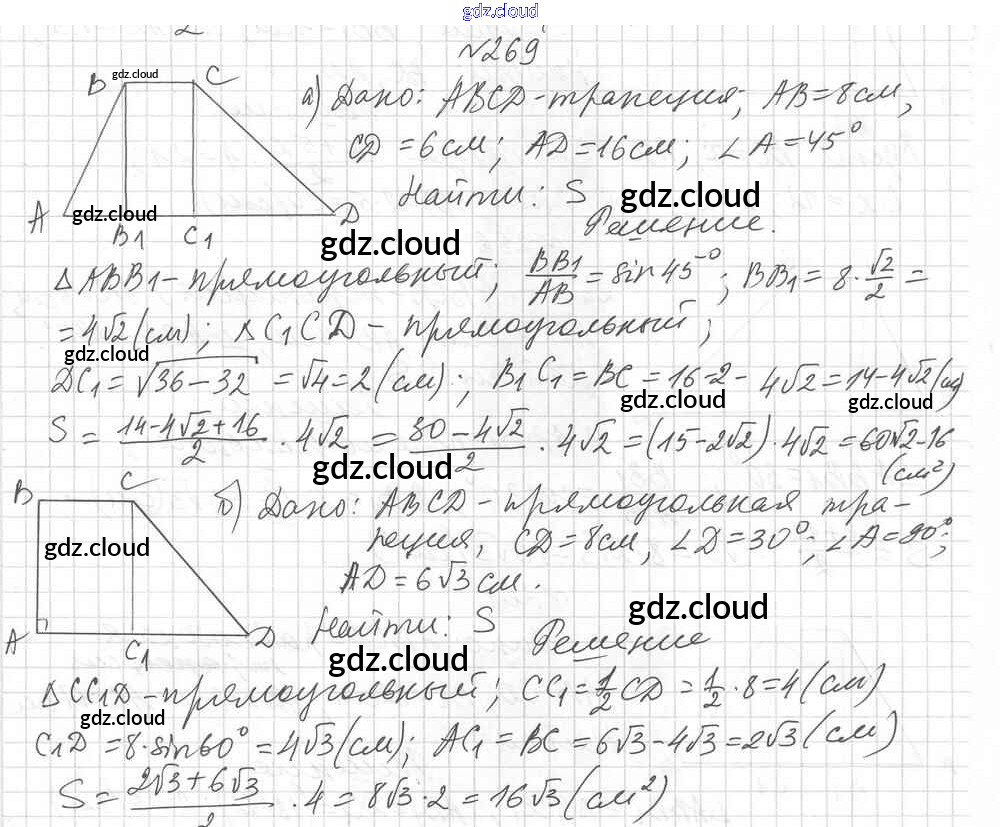 gdz.cloud
№269
B gdz.cloud C
а) Дано: ABCD-трапеция; AB=8см,
CD=6см; AD=16см; ∠A=45°
Найти: S gdz.cloud
A gdz.cloud D
B1 C1 gdz.cloud
Решение.
△ABB1-прямоугольный; BB1/AB = sin45°; BB1=8·√2/2=
=4√2(см); △C1CD-прямоугольный;
gdz.cloud
DC1=√36-32=√4=2(см); B1C1=BC=16-2-4√2=14-4√2(см)
gdz.cloud gdz.cloud
S=(14-4√2+16)/2·4√2=(30-4√2)/2·4√2=(15-2√2)·4√2=60√2-16
(см²)
gdz.cloud
B C
б) Дано: ABCD-прямоугольная тра-
пеция, CD=8см, ∠D=30°; ∠A=90°;
gdz.cloud
AD=6√3см.
Найти: S gdz.cloud
A C1 D
Решение
gdz.cloud
△CC1D-прямоугольный; CC1=1/2CD=1/2·8=4(см)
gdz.cloud
C1D=8·sin60°=4√3(см); AC1=BC=6√3-4√3=2√3(см)
S=(2√3+6√3)/2·4=8√3·2=16√3(см²)